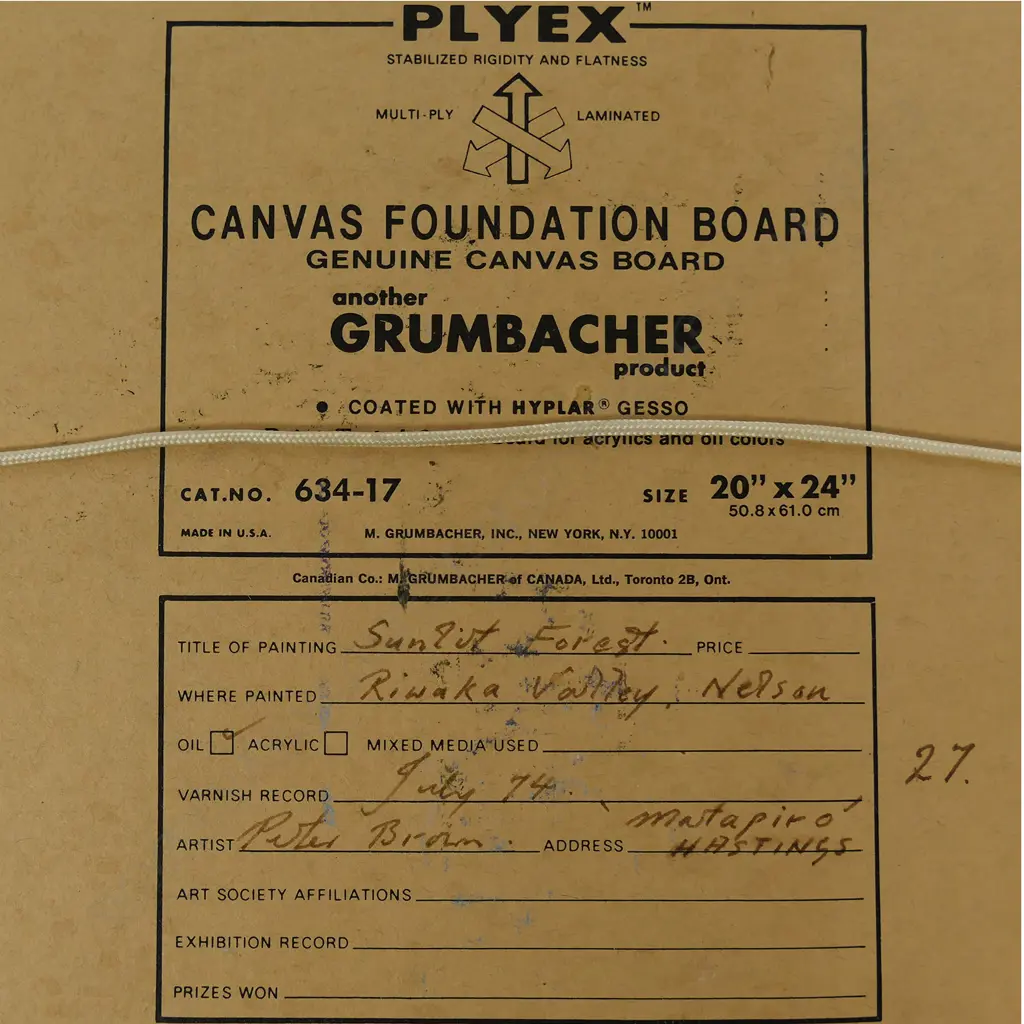 PLYEX™
STABILIZED RIGIDITY AND FLATNESS
MULTI-PLY LAMINATED
CANVAS FOUNDATION BOARD
GENUINE CANVAS BOARD
another
GRUMBACHER
product
• COATED WITH HYPLAR® GESSO
for acrylics and oil colors
CAT.NO. 634-17 SIZE 20” x 24”
50.8 x 61.0 cm
MADE IN U.S.A. M. GRUMBACHER, INC., NEW YORK, N.Y. 10001
Canadian Co.: M. GRUMBACHER of CANADA, Ltd., Toronto 2B, Ont.
TITLE OF PAINTING Sunlit Forest. PRICE
WHERE PAINTED Riwaka Valley, Nelson
OIL ACRYLIC MIXED MEDIA USED
27.
VARNISH RECORD July 74.
ARTIST Peter Brown. ADDRESS 'Matapiro'
HASTINGS
ART SOCIETY AFFILIATIONS
EXHIBITION RECORD
PRIZES WON